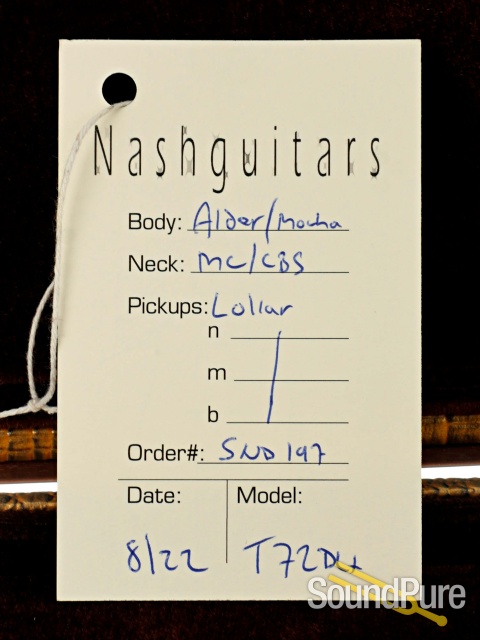 Nashguitars
Body: Alder/Mocha
Neck: MC/CBS
Pickups: Lollar
n
m
b
Order#: SND 197
Date: Model:
8/22 T72DLX
SoundPure